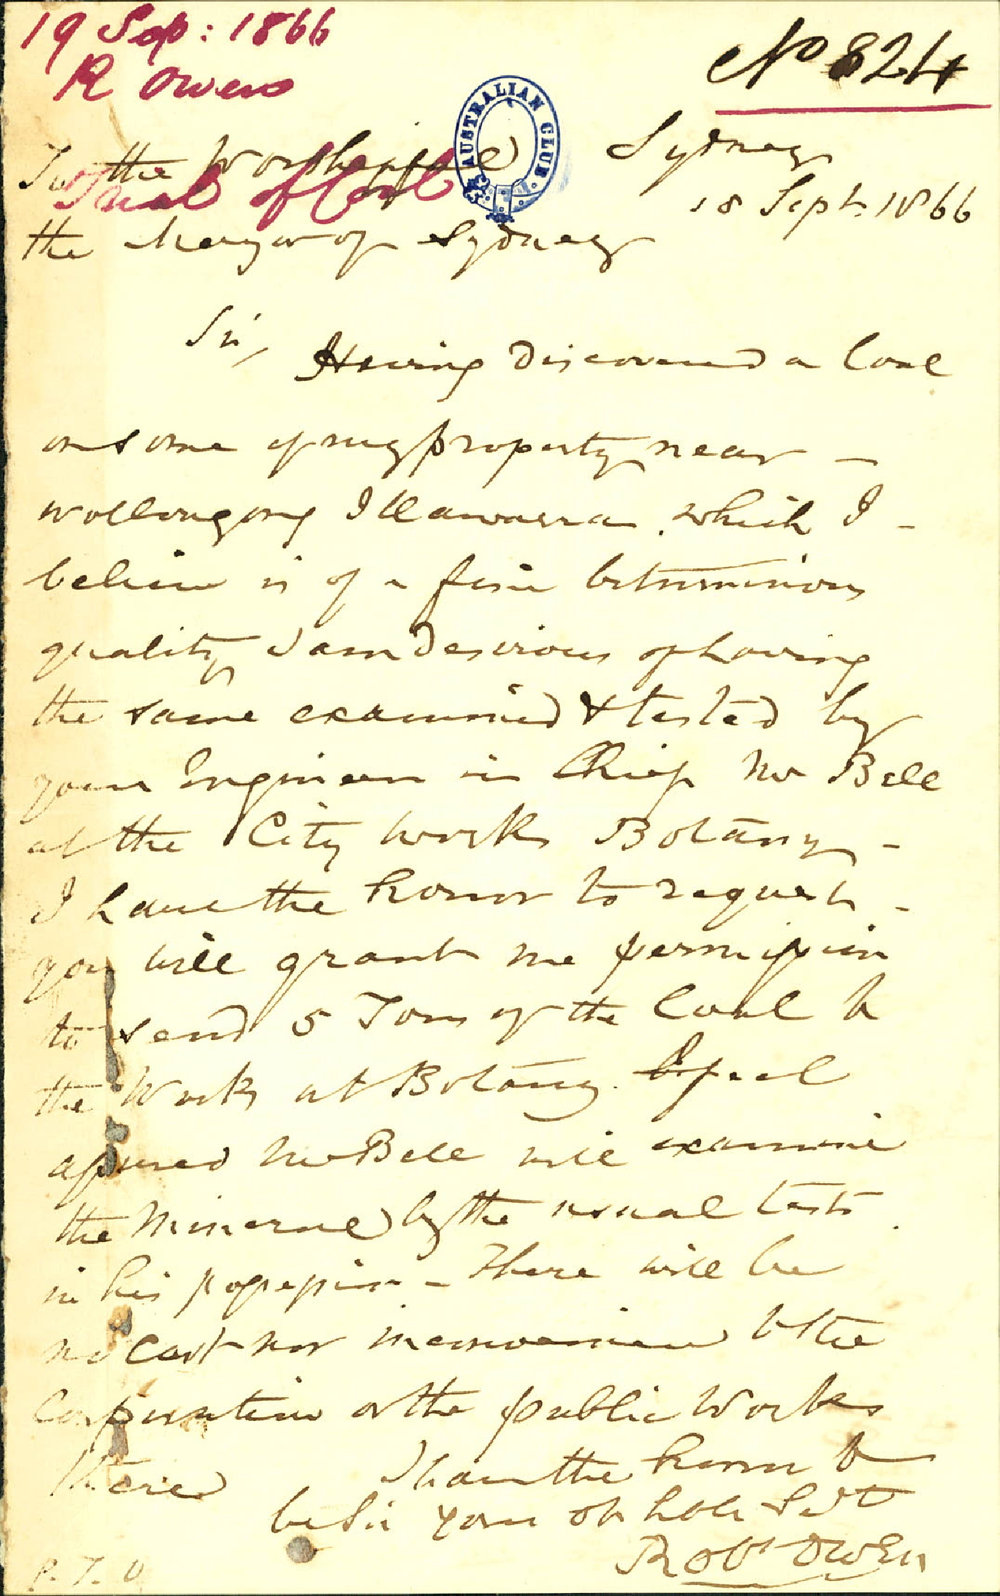 19 Sep: 1866
R Owens
No 824
AUSTRALIAN CLUB
Sydney
18 Sept. 1866
To the Worshipful
Trial of Coal
the Mayor of Sydney
Sir,
Having discovered a Coal
on some of my property near —
Wollongong Illawarra which I —
believe is of a fine bituminous
quality I am desirous of having
the same examined & tested by
your Engineer in Chief Mr Bell
at the City Works Botany —
I have the honor to request —
you will grant me permission
to send 5 Tons of the Coal to
the Works at Botany. I feel
assured Mr Bell will examine
the Mineral by the usual tests
in his possession — There will be
no cost nor inconvenience to the
Corporation or the public Works
there
I have the honor to
be Sir your ob
Robt Owen
P. T. O